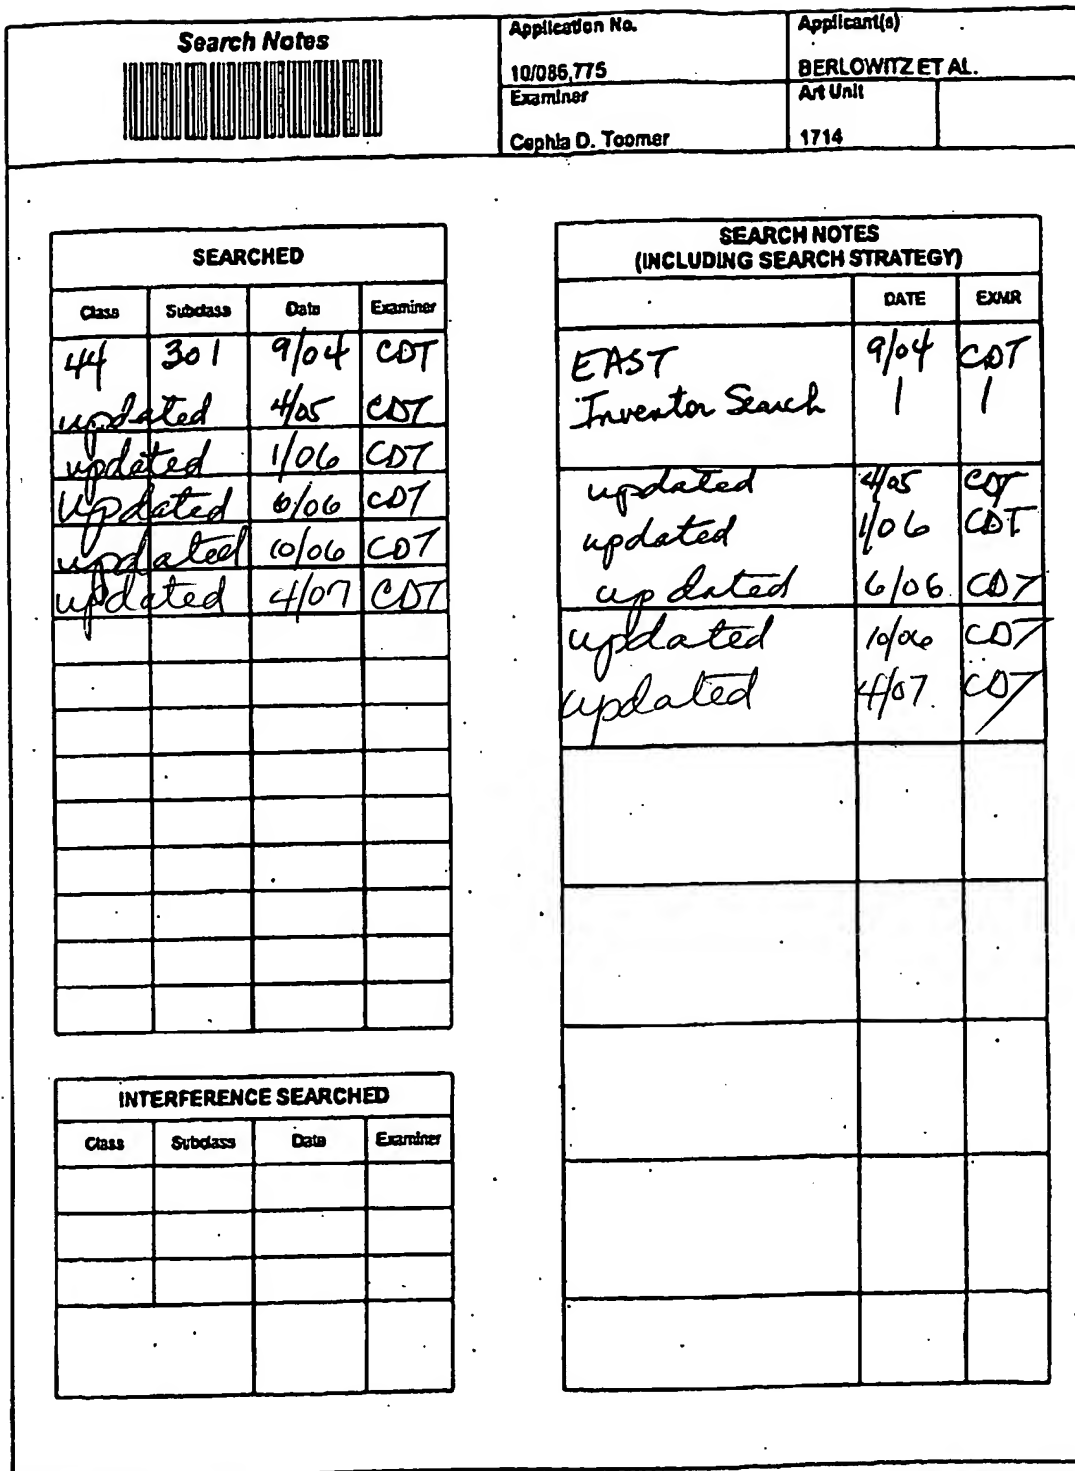 Search Notes
Application No.
10/085,775
Applicant(s)
BERLOWITZ ET AL.
Examiner
Cephia D. Toomer
Art Unit
1714
SEARCHED
Class Subclass Date Examiner
44 301 9/04 CDT
updated 4/05 CDT
updated 1/06 CDT
updated 6/06 CDT
updated 10/06 CDT
updated 4/07 CDT
INTERFERENCE SEARCHED
Class Subclass Date Examiner
SEARCH NOTES
(INCLUDING SEARCH STRATEGY)
DATE EXMR
EAST 9/04 CDT
Inventor Search | |
updated 4/05 CDT
updated 1/06 CDT
updated 6/06 CDT
updated 10/06 CDT
updated 4/07 CDT